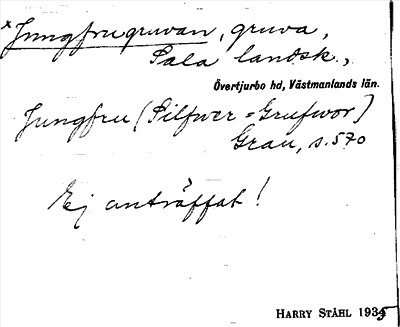 *Jungfrugruvan, gruva,
Sala landsk.,
Övertjurbo hd, Västmanlands län.
Jungfru (Silfwer=Grufwor)
Grau, s. 570
Ej anträffat!
HARRY STÅHL 1935